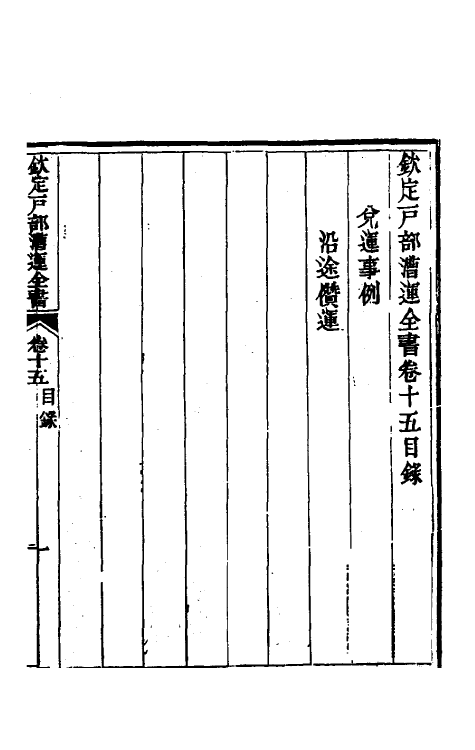 欽定戸部漕運全書卷十五目錄
兌運事例
沿途儹運
欽定戸部漕運全書
卷十五
目錄
一